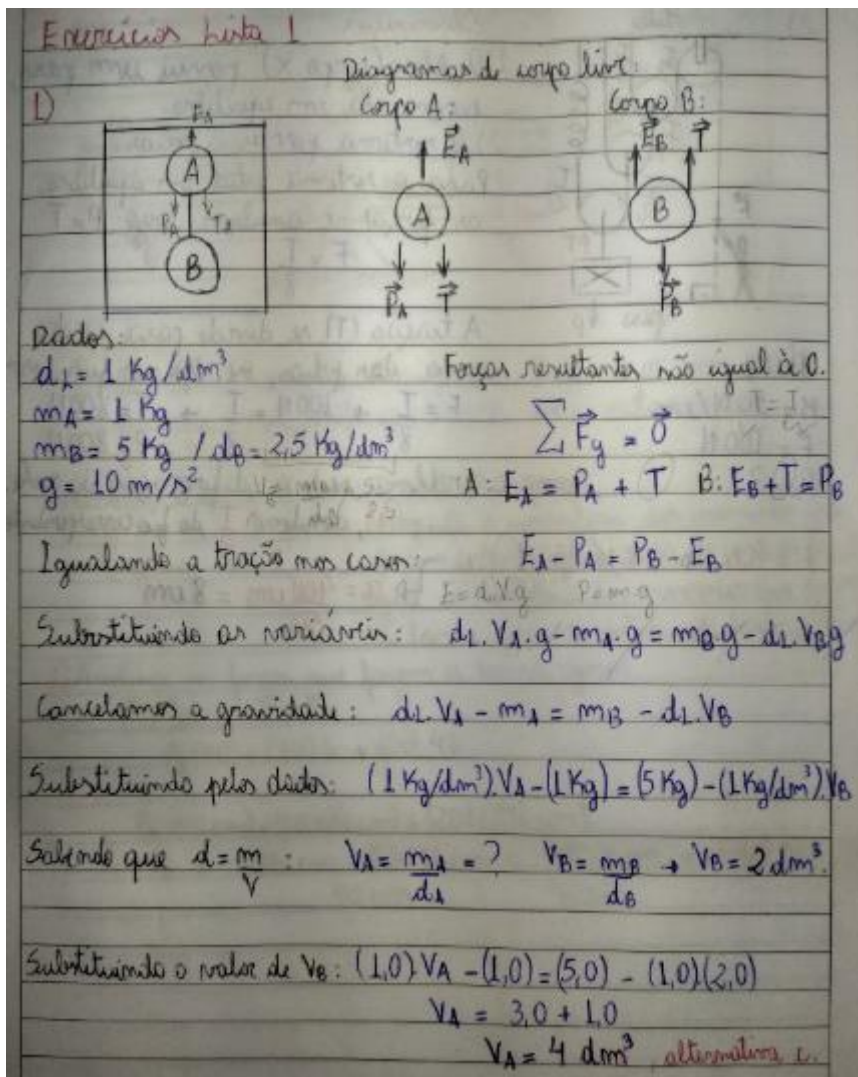 Exercícios Lista 1
Diagramas de corpo livre:
1)
Corpo A:
Corpo B:
E_A
A
P_A T_A
B
→E_A
A
→P_A →T
→E_B →T
B
→P_B
Dados:
d_L = 1 Kg/dm³
m_A = 1 Kg
m_B = 5 Kg / d_B = 2,5 Kg/dm³
g = 10 m/s²
Forças resultantes são igual à 0.
∑ →F_y = →0
A: E_A = P_A + T B: E_B + T = P_B
Igualando a tração nos casos: E_A - P_A = P_B - E_B
E = d.V.g P = m.g
Substituindo as variáveis: d_L . V_A . g - m_A . g = m_B . g - d_L . V_B g
Cancelamos a gravidade: d_L . V_A - m_A = m_B - d_L . V_B
Substituindo pelos dados: (1 Kg/dm³).V_A - (1 Kg) = (5 Kg) - (1 Kg/dm³).V_B
Sabendo que d = m/V : V_A = m_A/d_A = ? V_B = m_B/d_B → V_B = 2 dm³.
Substituindo o valor de V_B: (1,0).V_A - (1,0) = (5,0) - (1,0)(2,0)
V_A = 3,0 + 1,0
V_A = 4 dm³ alternativa c.